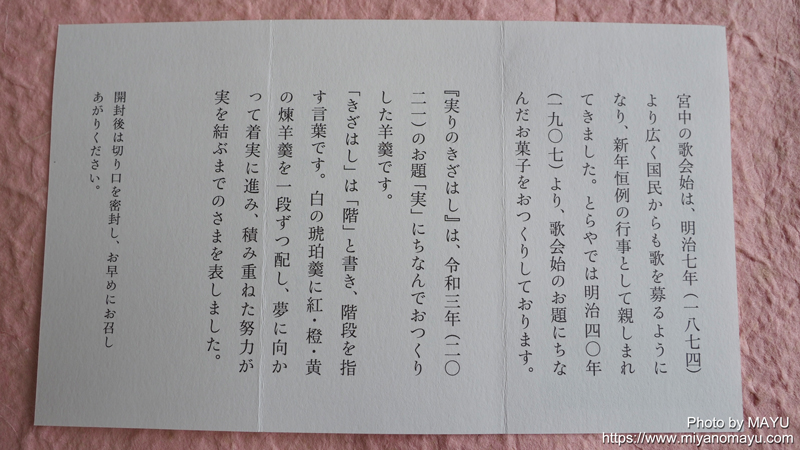 宮中の歌会始は、明治七年（一八七四）
より広く国民からも歌を募るように
なり、新年恒例の行事として親しまれ
てきました。とらやでは明治四〇年
（一九〇七）より、歌会始のお題にちな
んだお菓子をおつくりしております。
『実りのきざはし』は、令和三年（二〇
二一）のお題「実」にちなんでおつくり
した羊羹です。
「きざはし」は「階」と書き、階段を指
す言葉です。白の琥珀羹に紅・橙・黄
の煉羊羹を一段ずつ配し、夢に向か
って着実に進み、積み重ねた努力が
実を結ぶまでのさまを表しました。
開封後は切り口を密封し、お早めにお召し
あがりください。
Photo by MAYU
https://www.miyanomayu.com/